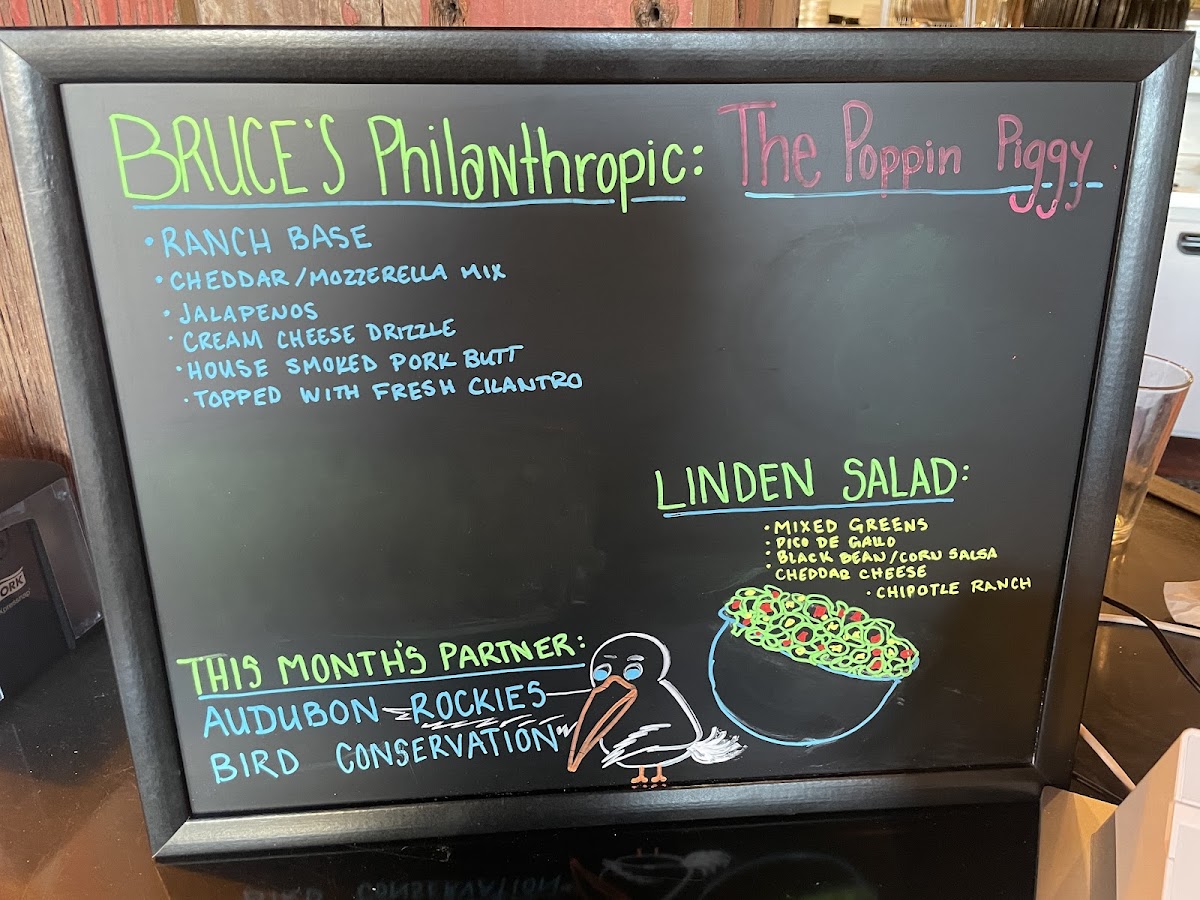 BRUCE'S Philanthropic: The Poppin Piggy
• RANCH BASE
• CHEDDAR/MOZZERELLA MIX
• JALAPENOS
• CREAM CHEESE DRIZZLE
• HOUSE SMOKED PORK BUTT
• TOPPED WITH FRESH CILANTRO
LINDEN SALAD:
• MIXED GREENS
• PICO DE GALLO
• BLACK BEAN/CORN SALSA
• CHEDDAR CHEESE
• CHIPOTLE RANCH
THIS MONTH'S PARTNER:
AUDUBON ROCKIES
BIRD CONSERVATION